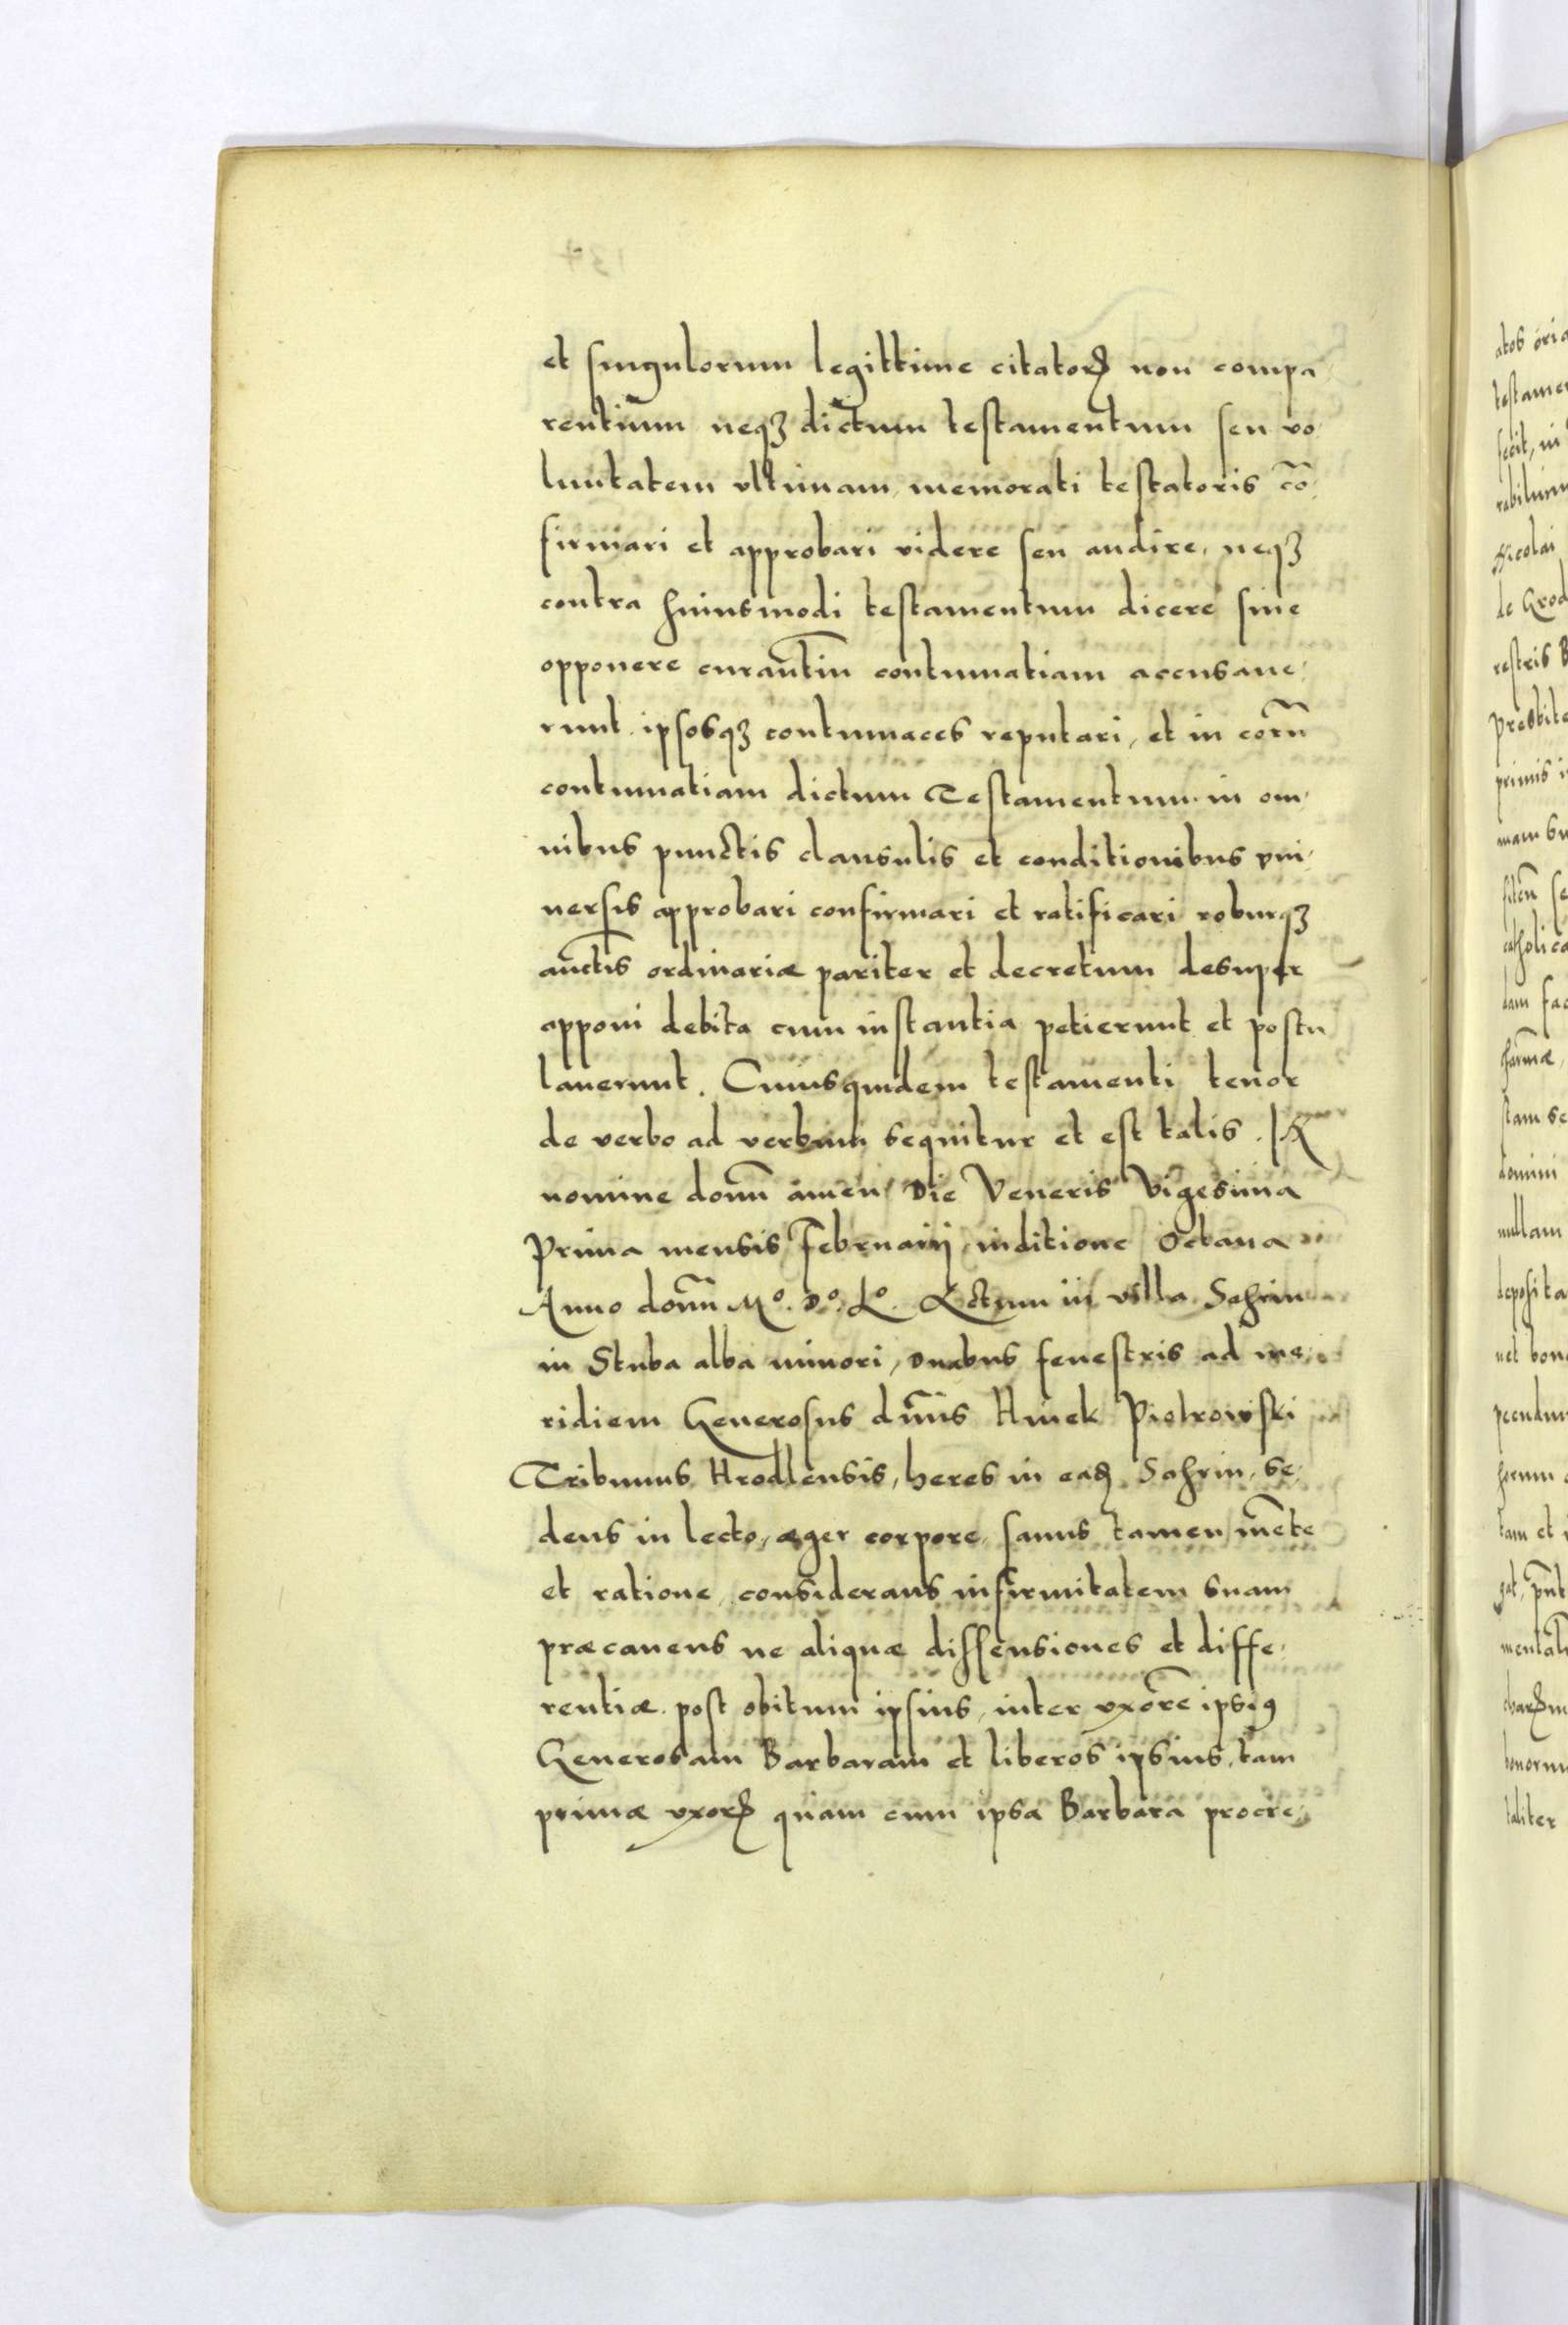 et singulorum legittime citatoꝝ non compa
rentium neqꝫ dictum testamentum seu vo
luntatem vltimam, memorati testatoris cō,
firmari et approbari videre seu audire, neqꝫ
contra huiusmodi testamentum dicere siue
opponere curantiū contumatiam accusaue,
runt. ipsosqꝫ contumaces reputari, et in eorū
contumatiam dictum Testamentum in om,
nibus punctis clausulis et conditionibus vni,
uersis approbari confirmari et ratificari roburqꝫ
auctīs ordinariæ pariter et decretum desuper
apponi debita cum instantia petierunt et postu
lauerunt. Cuiusquidem testamenti tenor
de verbo ad verbum sequitur et est talis. IN
nomine domī amen Die Veneris Vigesima
Prima mensis Februarij inditione Octaua
Anno domī Mº. Dº. Lº. Actum in villa Sahrin
in Stuba alba minori, duabus fenestris ad me,
ridiem Generosus dñus Hinek Piotrowski
Tribunus Hrodlensis, heres in eaꝫ Sahrin, se,
dens in lecto, æger corpore, sanus tamen mēte
et ratione, considerans infirmitatem suam
præcauens ne aliquæ dissensiones et diffe,
rentiæ post obitum ipsius, inter vxorē ipsiꝯ
Generosam Barbaram et liberos ipsius, tam
primæ vxorꝫ quam cum ipsa Barbara procre,
atos
testamen
fecit, in
Nicolai
de Grod
restris
Presbite
primis
catholica
domini
nullam
deposita
net bon
tam et
taliter